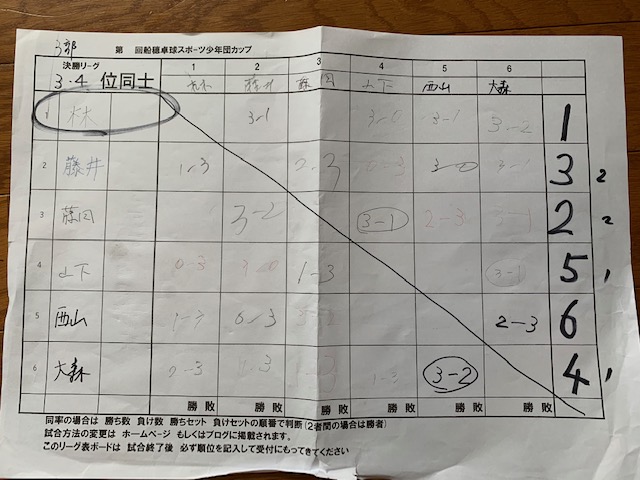 3部
第 回船穂卓球スポーツ少年団カップ
決勝リーグ 1 2 3 4 5 6
3・4 位同士 林 藤井 藤岡 山下 西山 大森
1 林 3-1 3-0 3-1 3-2 1
2 藤井 1-3 2-3 3-0 3 2
3 藤岡 3-2 3-1 2-3 2 2
4 山下 0-3 3-0 1-3 3-1 5 1
5 西山 1-3 0-3 2-3 6
6 大森 2-3 3-2 4 1
勝 敗 勝 敗 勝 敗 勝 敗 勝 敗 勝 敗
同率の場合は 勝ち数 負け数 勝ちセット 負けセットの順番で判断(2者間の場合は勝者)
試合方法の変更は ホームページ もしくはブログに掲載されます。
このリーグ表ボードは 試合終了後 必ず順位を記入して受付にもってきてください